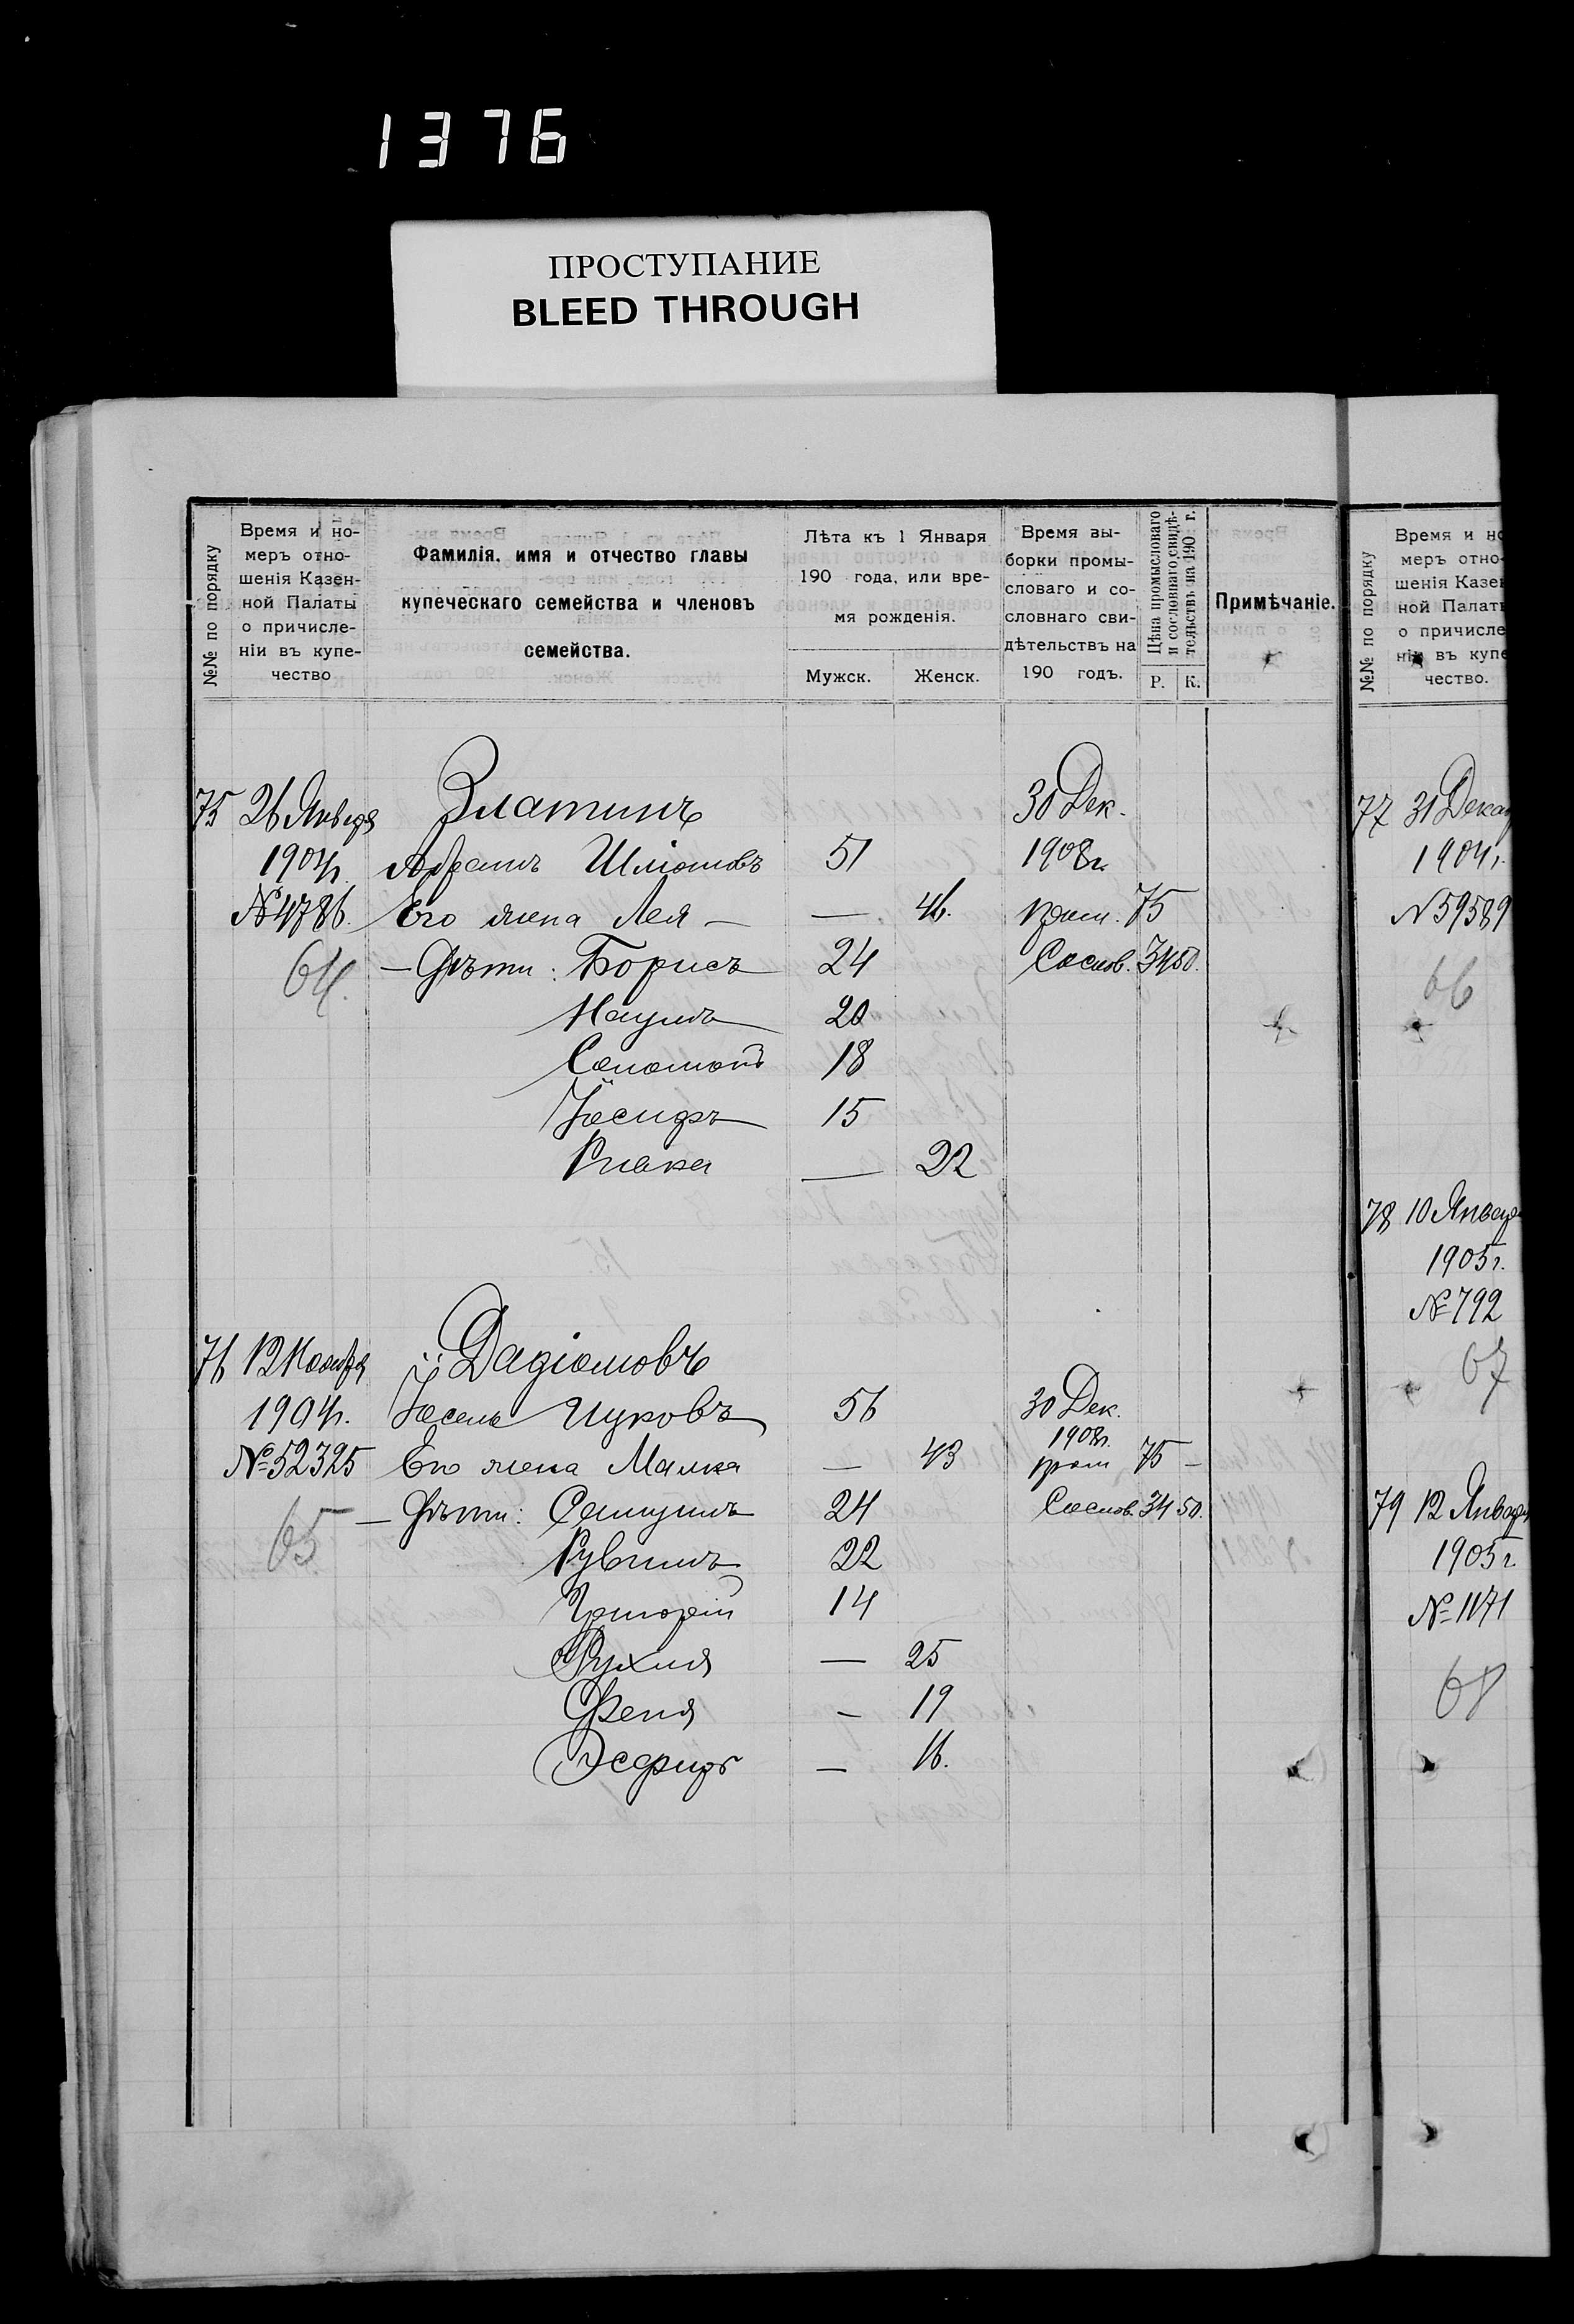 1376
ПРОСТУПАНИЕ
BLEED THROUGH
№№ по порядку
Время и но-
меръ отно-
шенія Казен-
ной Палаты
о причисле-
ніи въ купе-
чество
Фамилія, имя и отчество главы
купеческаго семейства и членовъ
семейства.
Лѣта къ 1 Января
190 года, или вре-
мя рожденія.
Мужск. Женск.
Время вы-
борки промы-
словаго и со-
словнаго сви-
дѣтельствъ на
190 годъ.
Цѣна промысловаго
и сословнаго свидѣ-
тельствъ на 190 г.
Р. К.
Примѣчаніе.
75 26 Января Златинъ 30 Дек.
1904г. Абрамъ Шліомовъ 51 1908г.
№4786. Его жена Лея — — 46. пром. 75
64. — Дѣти: Борисъ 24 Сослов. 34 50.
Наумъ 20
Соломонъ 18
Іосифъ 15
Ривка — 22
76 12 Ноября Дадіомовъ
1904г. Іосель Ицковъ 56 30 Дек.
1908г.
№52325 Его жена Малка — 43 пром 75 —
65 — Дѣти: Самуилъ 24 Сослов. 34 50.
Рувимъ 22
Григорій 14
Рухля — 25
Феня — 19
Эсфирь — 16.
№№ по порядку
Время и но
меръ отно-
шенія Казен
ной Палаты
о причисле
ніи въ купе
чество.
77 31 Декаб
1904г.
№59589
66
78 10 Января
1905г.
№792
67
79 12 Января
1905г.
№1171
68